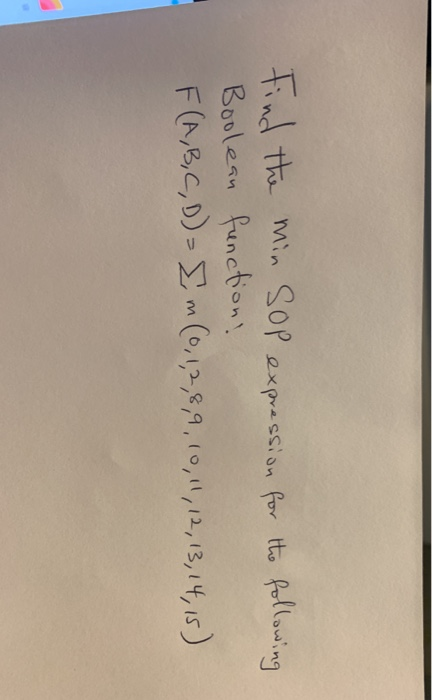 Find the min SOP expression for the following
Boolean function:
F(A,B,C,D) = Σ m (0,1,2,8,9,10,11,12,13,14,15)